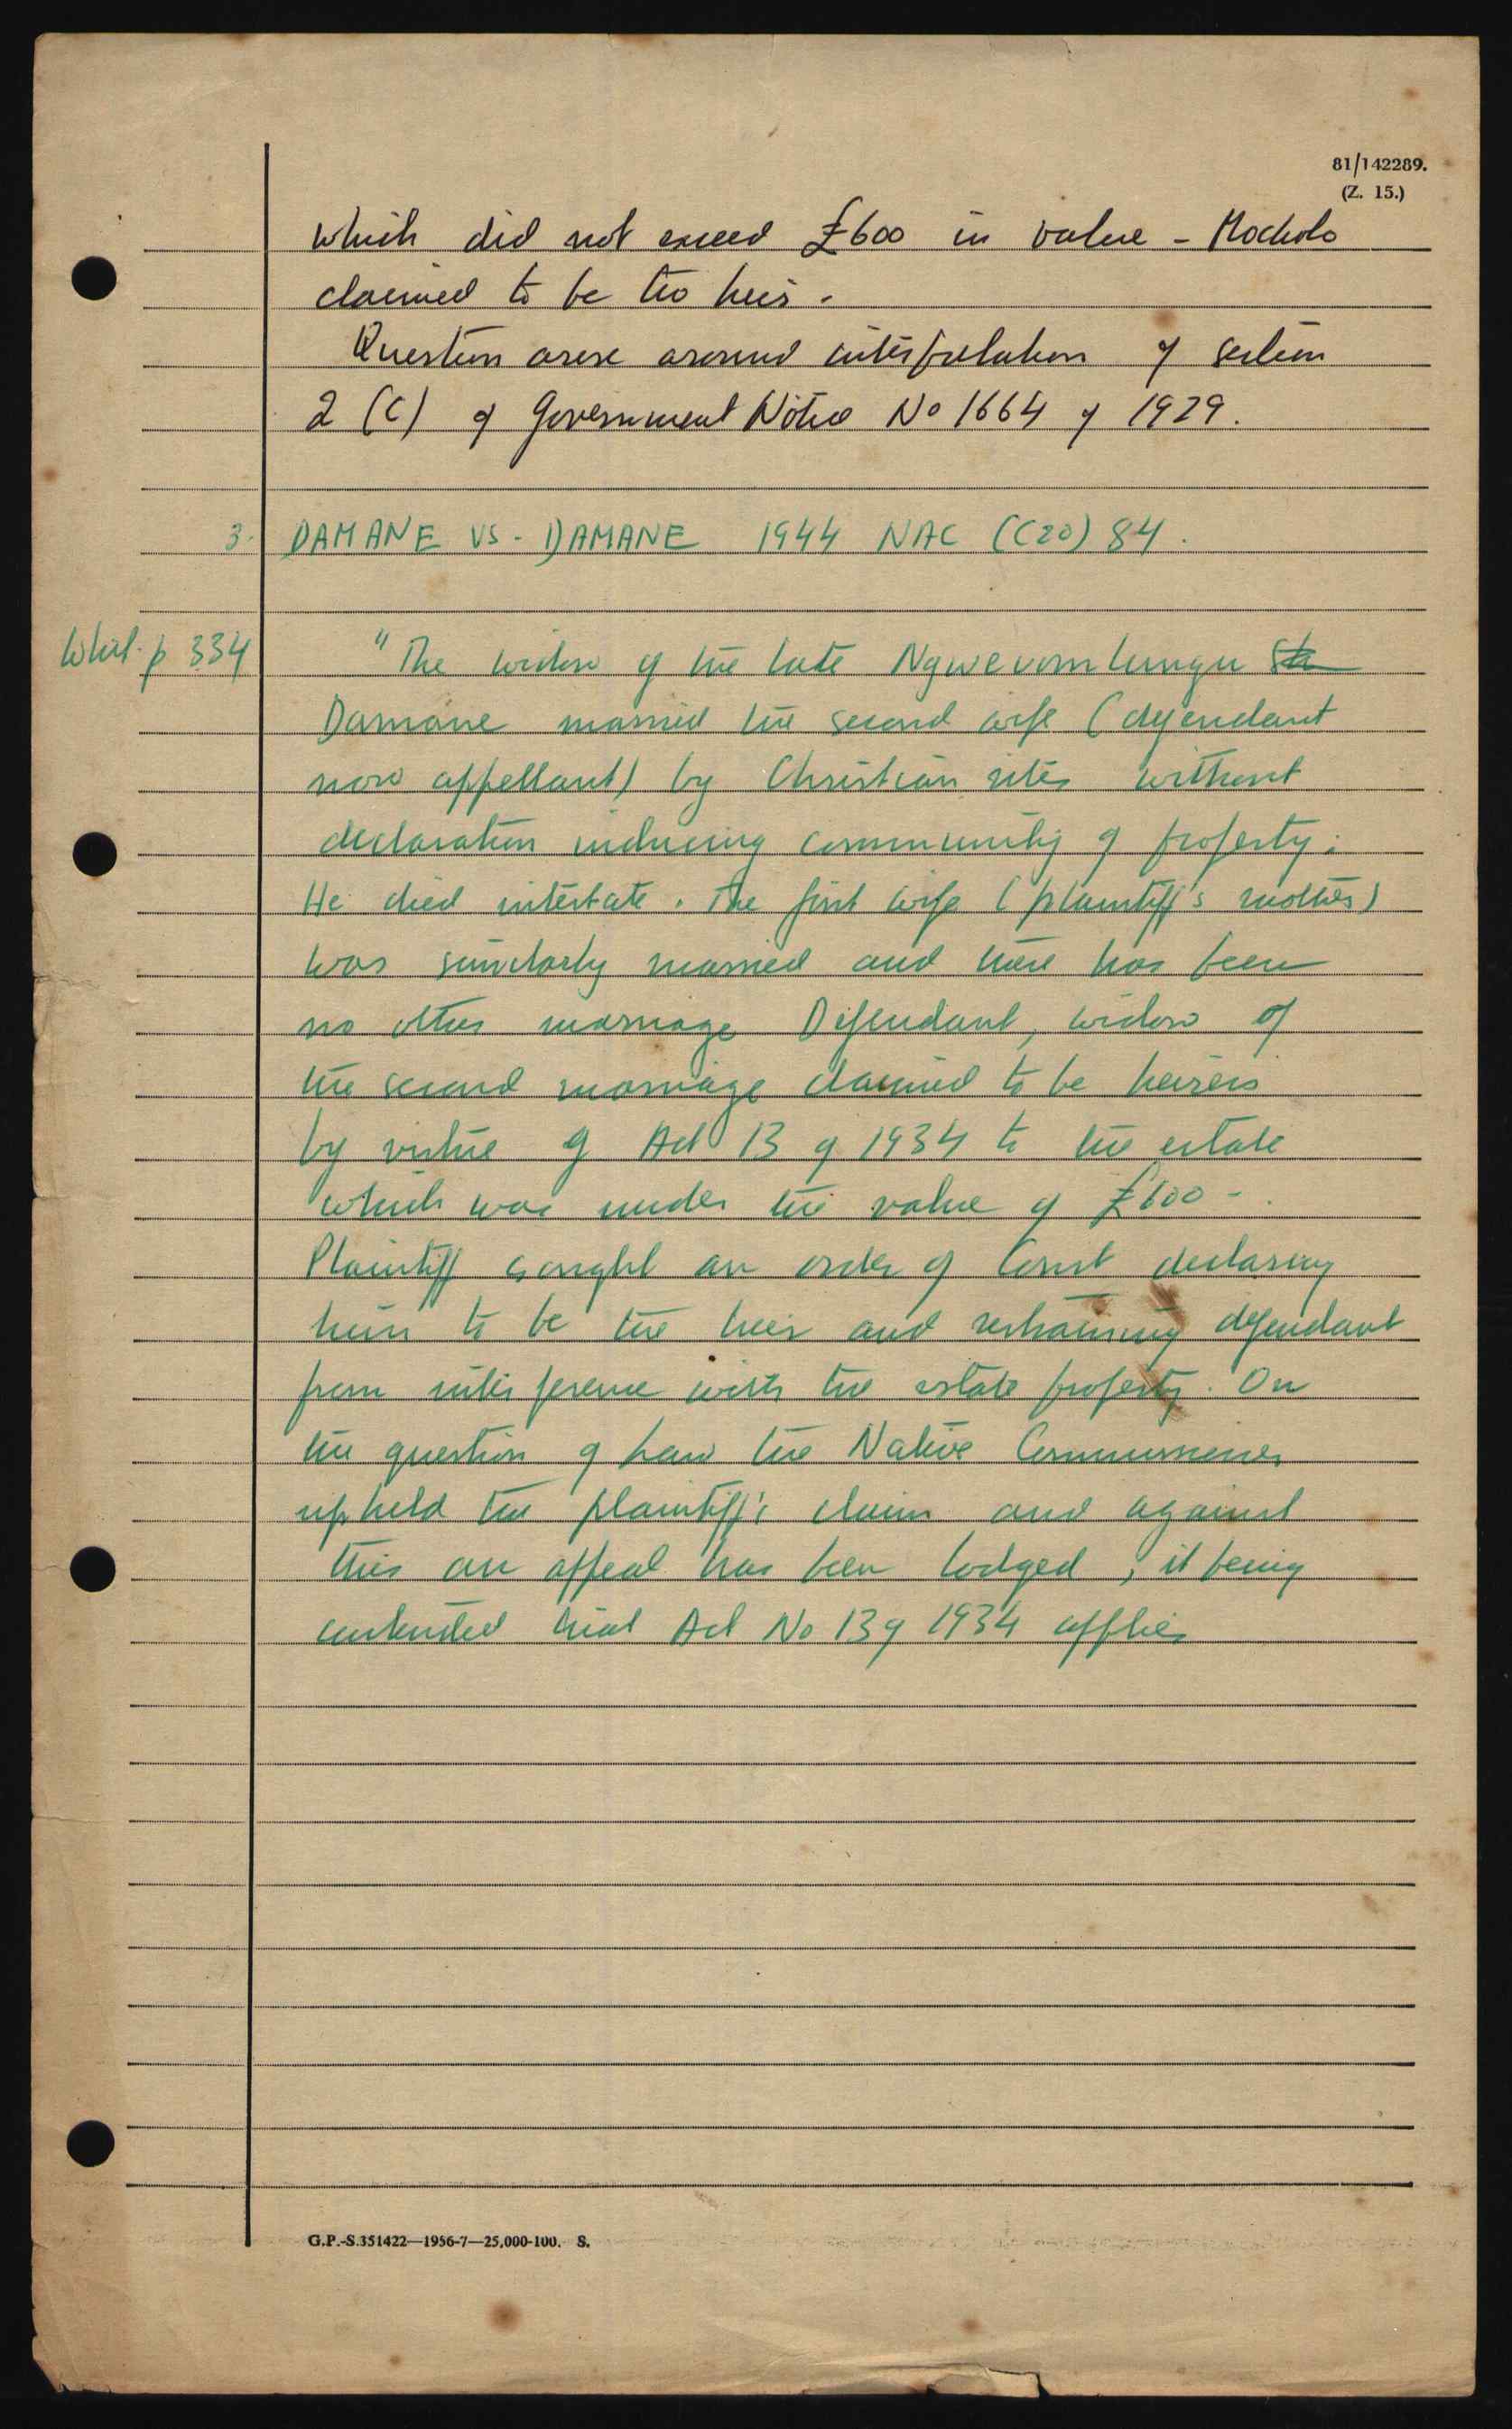 81/142289.
(Z. 15.)
which did not exceed £600 in value - Mocholo
claimed to be the heir.
Question arose around interpretation of section
2 (C) of Government Notice No 1664 of 1929.
3. DAMANE VS. DAMANE 1944 NAC (C20) 84.
Whit. p 334
"The widow of the late Ngwevomlungu
Damane married the second wife (defendant
now appellant) by Christian rites without
declaration inducing community of property.
He died intestate. The first wife (plaintiff's mother)
was similarly married and there has been
no other marriage Defendant, widow of
the second marriage claimed to be heiress
by virtue of Act 13 of 1934 to the estate
which was under the value of £600 -.
Plaintiff sought an order of Court declaring
him to be the heir and restraining defendant
from interference with the estate property. On
the question of Law the Native Commissioner
upheld the plaintiff's claim and against
this an appeal has been lodged, it being
contended that Act No 13 of 1934 applies
G.P.-S.351422—1956-7—25,000-100. S.